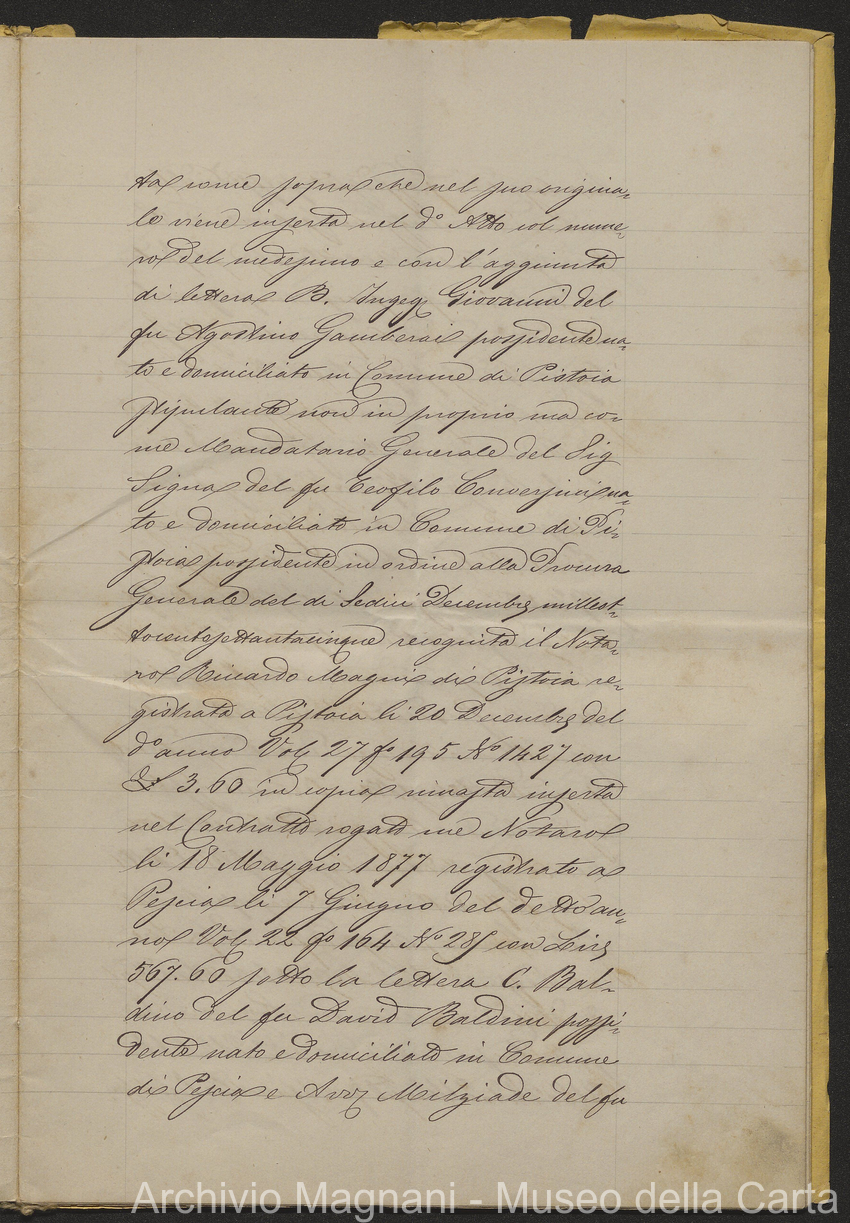 ta come sopra che nel suo origina-
le viene inserta nel d° Atto col nume-
ro del medesimo e con l'aggiunta
di lettera B. Ingeg Giovanni del
fu Agostino Gamberai possidente na-
to e domiciliato in Comune di Pistoia
stipulante non in proprio ma co-
me Mandatario Generale del Sig
Signa del fu Teofilo Conversini na-
to e domiciliato in Comune di Pi-
stoia possidente in ordine alla Procura
Generale del dì Sedici Decembre millest-
tocentosettantacinque recognita il Nota-
ro Riccardo Magni di Pistoia re-
gistrata a Pistoia li 20 Decembre del
d° anno Vol 27 f° 195 N° 1427 con
£ 3.60 in copia rimasta inserta
nel Contratto rogato me Notaro
li 18 Maggio 1877 registrato a
Pescia li 7 Giugno del detto an-
no Vol 22 f° 164 N° con Lire
567.60 sotto la lettera C. Bal-
dino del fu David Baldini possi-
dente nato e domiciliato in Comune
di Pescia e Avv Milziade del fu
Archivio Magnani - Museo della Carta